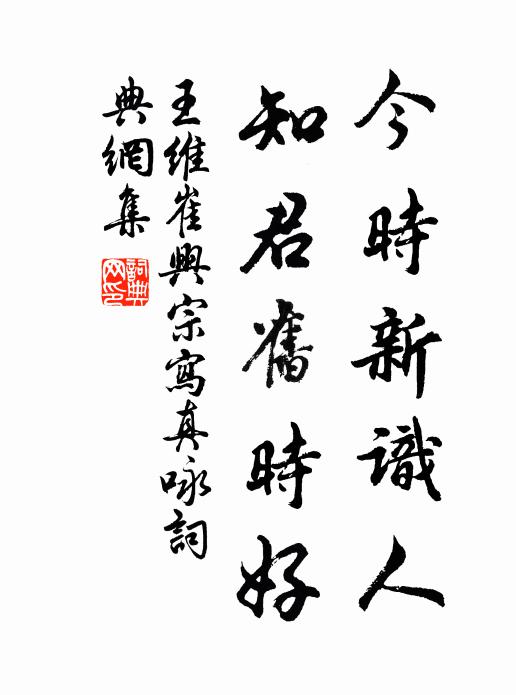 今時新識人
知君舊時好
王維崔興宗寫真咏詞
典網集
詞典網印